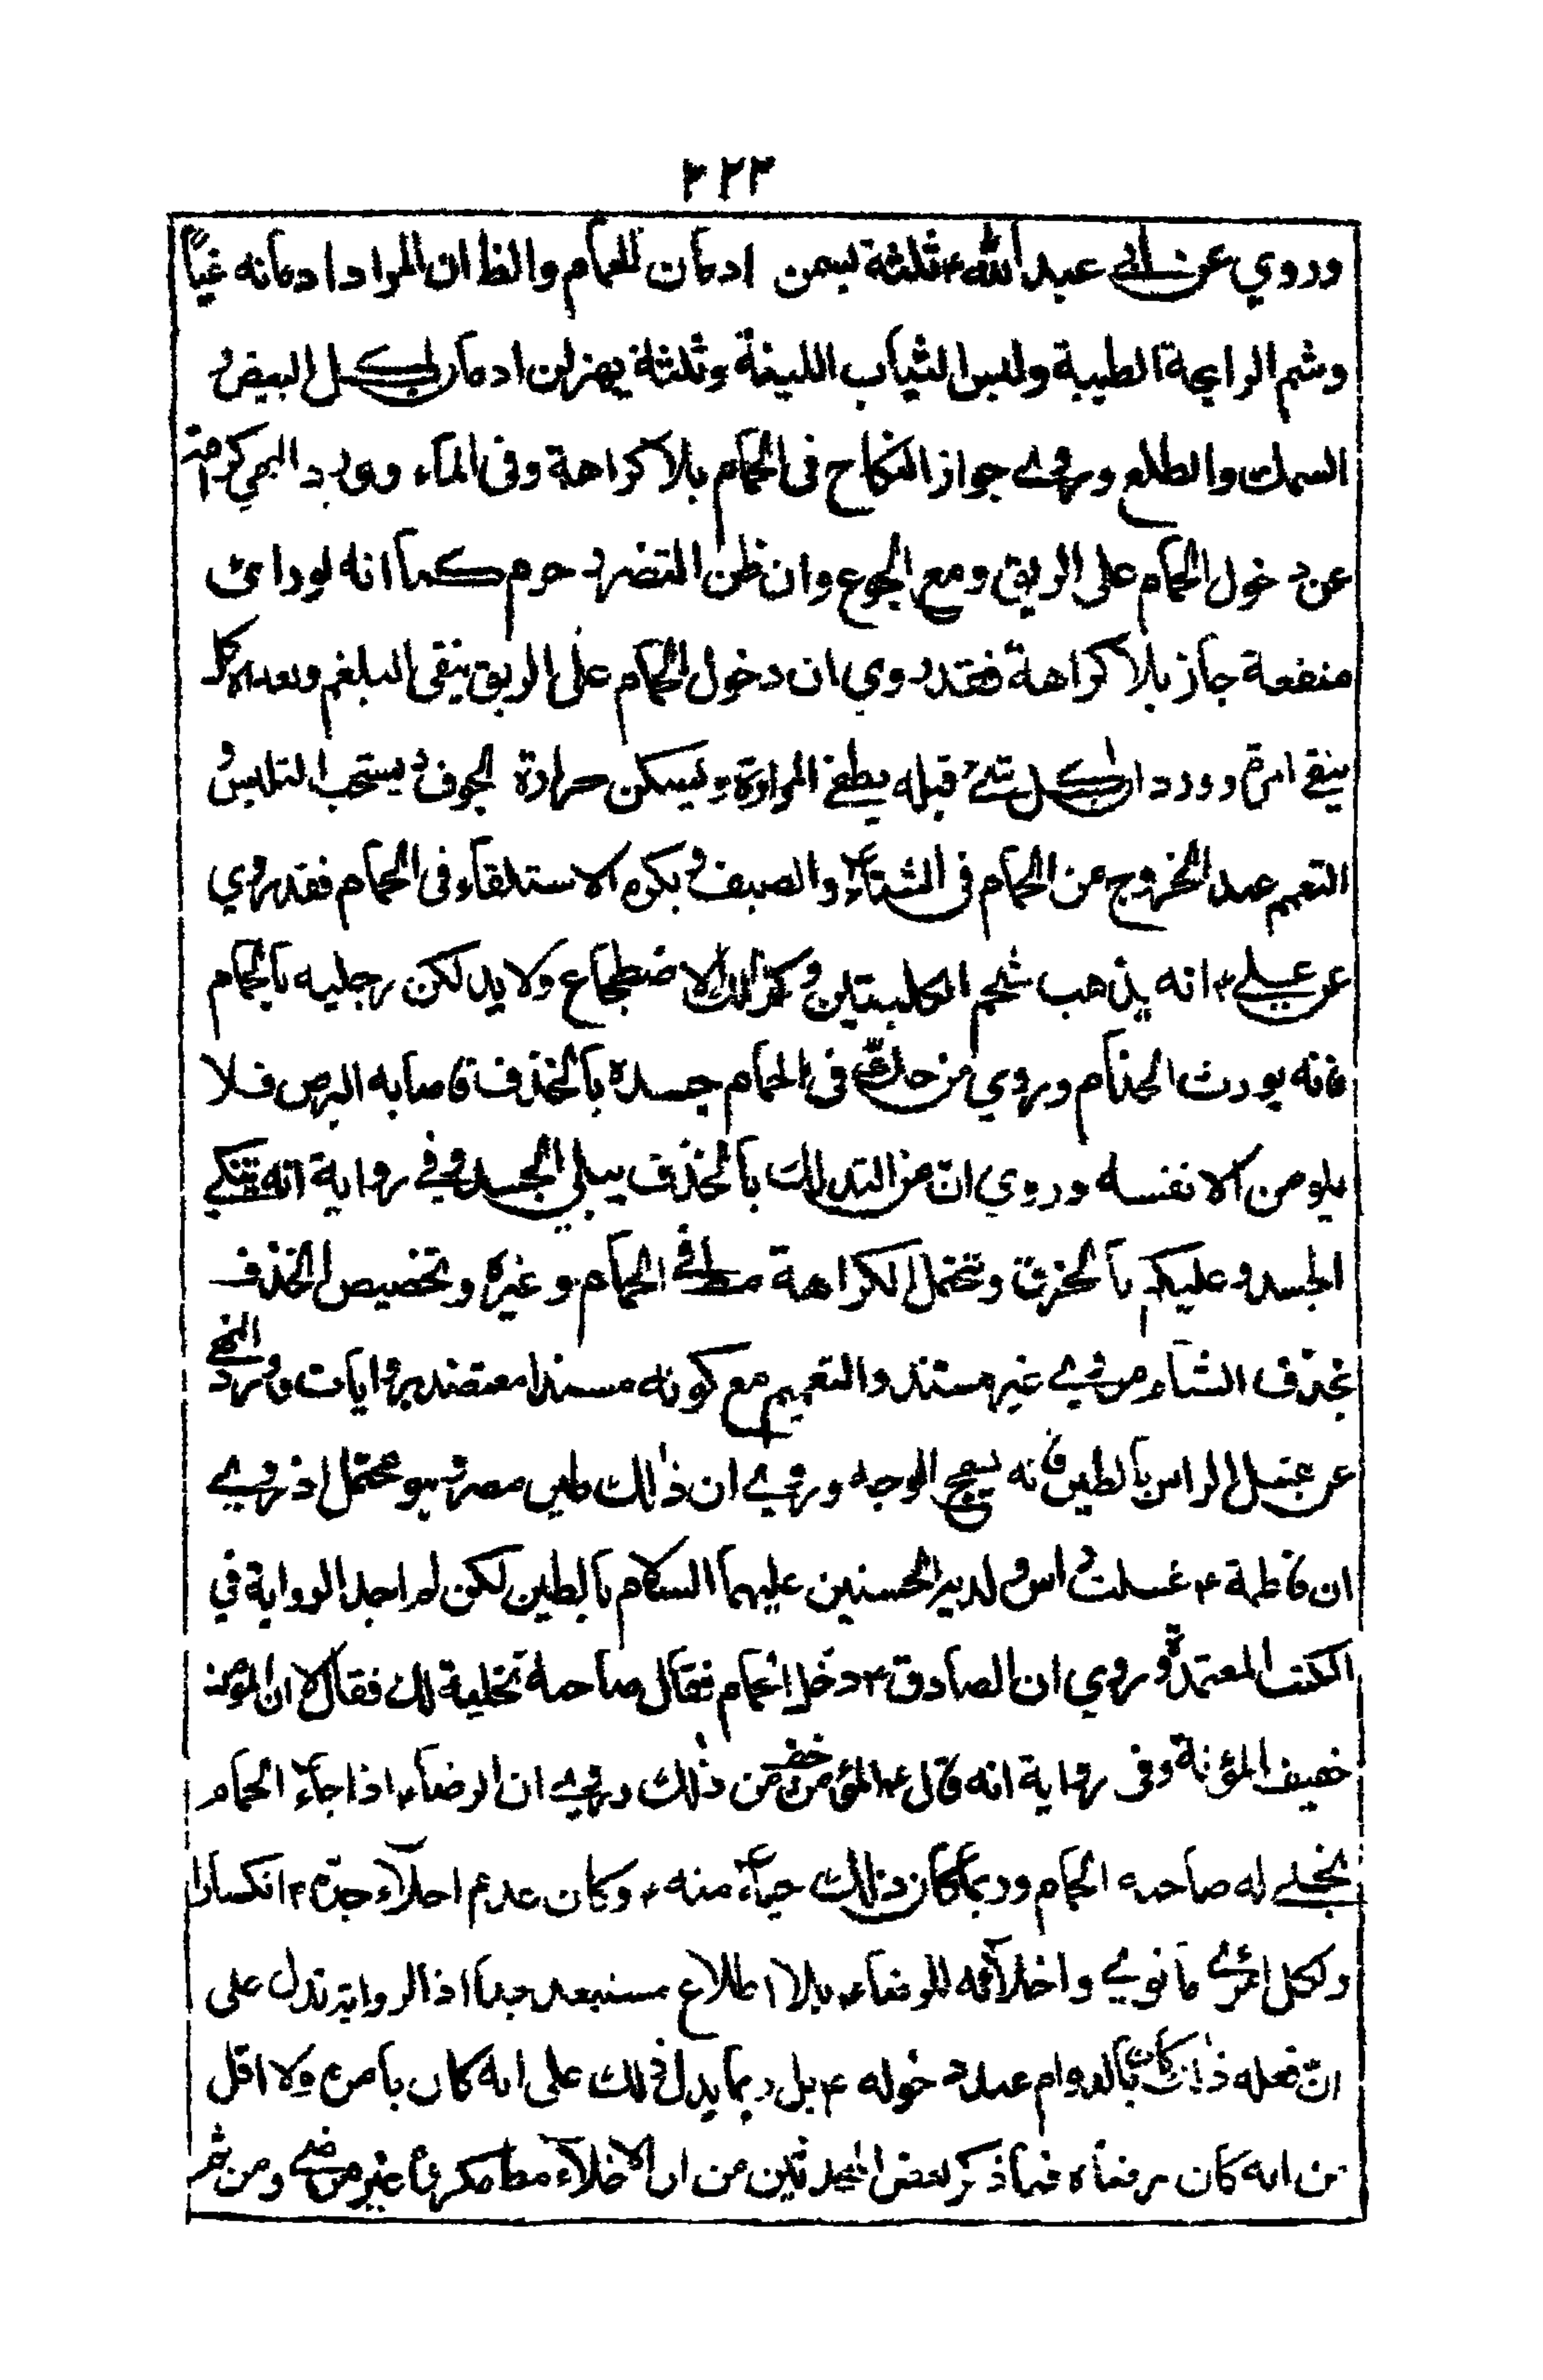 ٣٢٣
وروي عن ابي عبد الله ع ثلثة يسمن ادمان الحمام والظ ان المراد ادمانه غبا
وشم الرايحة الطيبة ولبس الثياب اللينة وثلثة يهزلن ادمان اكل البيض و
السمك والطلع وروي جواز النكاح في الحمام بلا كراهة وفي الماء وورد النهي
عن دخول الحمام على الريق ومع الجوع وان ظن التضرر حرم كما انه لو راى
منفعة جاز بلا كراهة فقد روي ان دخول الحمام على الريق ينقي البلغم وبعد الاكل
ينقي المرة وورد اكل شئ قبله يطفئ المرارة ويسكن حرارة الجوف ويستحب التلبس و
التعمم عند الخروج من الحمام في الشتاء والصيف ويكره الاستلقاء في الحمام فقد روي
عن علي ع انه يذهب شحم الكليتين وكذلك الاضطجاع ولا يدلكن رجليه بالحمام
فانه يورث الجذام وروي من حك في الحمام جسده بالخذف فاصابه البرص فلا
يلومن الا نفسه وروي ان من التدلك بالخذف يبلي الجسد وفي رواية انه ينكي
الجسد وعليكم بالخرق وتحتمل الكراهة مط في الحمام وغيره وتخصيص الخذف
بخذف الشام مروي غير مستند والتعميم مع كونه مسندا معتضد بروايات وورد النهي
عن غسل الراس بالطين فانه يسمج الوجه وروي ان ذلك طين مصر وهو محتمل اذ روي
ان فاطمة ع غسلت راس ولديها الحسنين عليهما السلام بالطين لكن لم اجد الرواية في
الكتب المعتمدة وروي ان الصادق ع دخل الحمام فقال صاحبه نخليه لك فقال لا ان المؤمن
خفيف المؤنة وفي رواية انه قال ع المؤمن اخف من ذلك وروي ان الرضا ع اذا جاء الحمام
يخلي له صاحبه الحمام وربما كان ذلك حياء منه ع وكان عدم اخلاء جده ع انكسارا
ولكل امرئ ما نوي واخلاؤه للرضا ع بلا اطلاع مستبعد جدا اذ الرواية تدل على
ان فعله ذلك كان بالدوام عند دخوله ع بل ربما يدل ذلك على انه كان بامره ولا اقل
من انه كان برضاه فما ذكر بعض المحدثين من ان الاخلاء مط مكروها غير مرضي ومن ثم